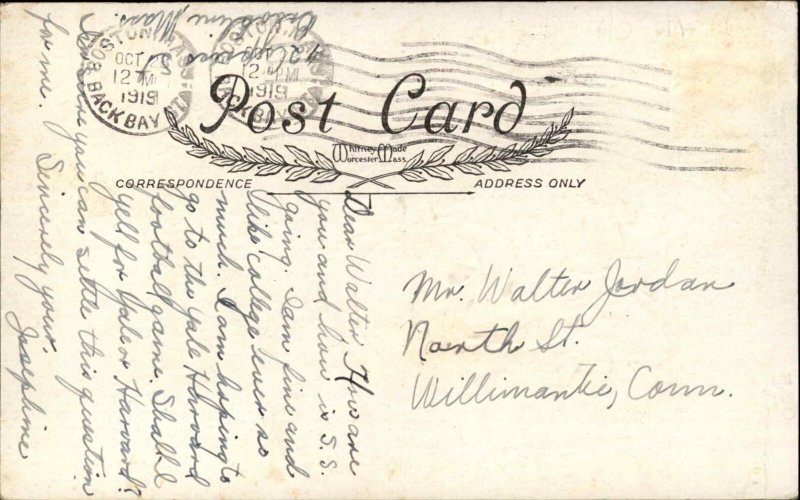 BOSTON MASS.
OCT
12 M
1919
BACK BAY STA.
12 PM
1919
Post Card
Whitney Made
Worcester Mass.
CORRESPONDENCE
ADDRESS ONLY
Brookline, Mass.
Dear Walter How are
you and how is S. S.
going. I am fine and
like college ever so
much. I am hoping to
go to the Yale Harvard
football game. Shall I
yell for Yale or Harvard?
you can settle this question
for me. Sincerely your,
Josephine
Mr. Walter Jordan
North St.
Willimantic, Conn.